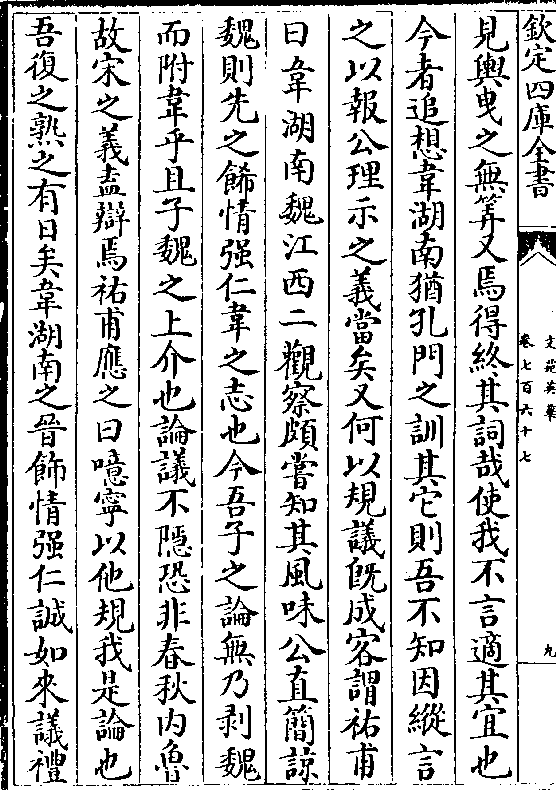 欽定四庫全書
文苑英華
卷七百六十七
九
見輿曳之無筭又焉得終其詞哉使我不言適其宜也
今者追想韋湖南猶孔門之訓其它則吾不知因縱言
之以報公理示之義當矣又何以規議旣成客謂祐甫
曰韋湖南魏江西二觀察頗嘗知其風味公直簡諒
魏則先之餙情强仁韋之志也今吾子之論無乃剥魏
而附韋乎且子魏之上介也論議不隠恐非春秋内魯
故宋之義盍辯焉祐甫應之曰噫寧以他規我是論也
吾復之熟之有日矣韋湖南之晉飾情强仁誠如來議禮